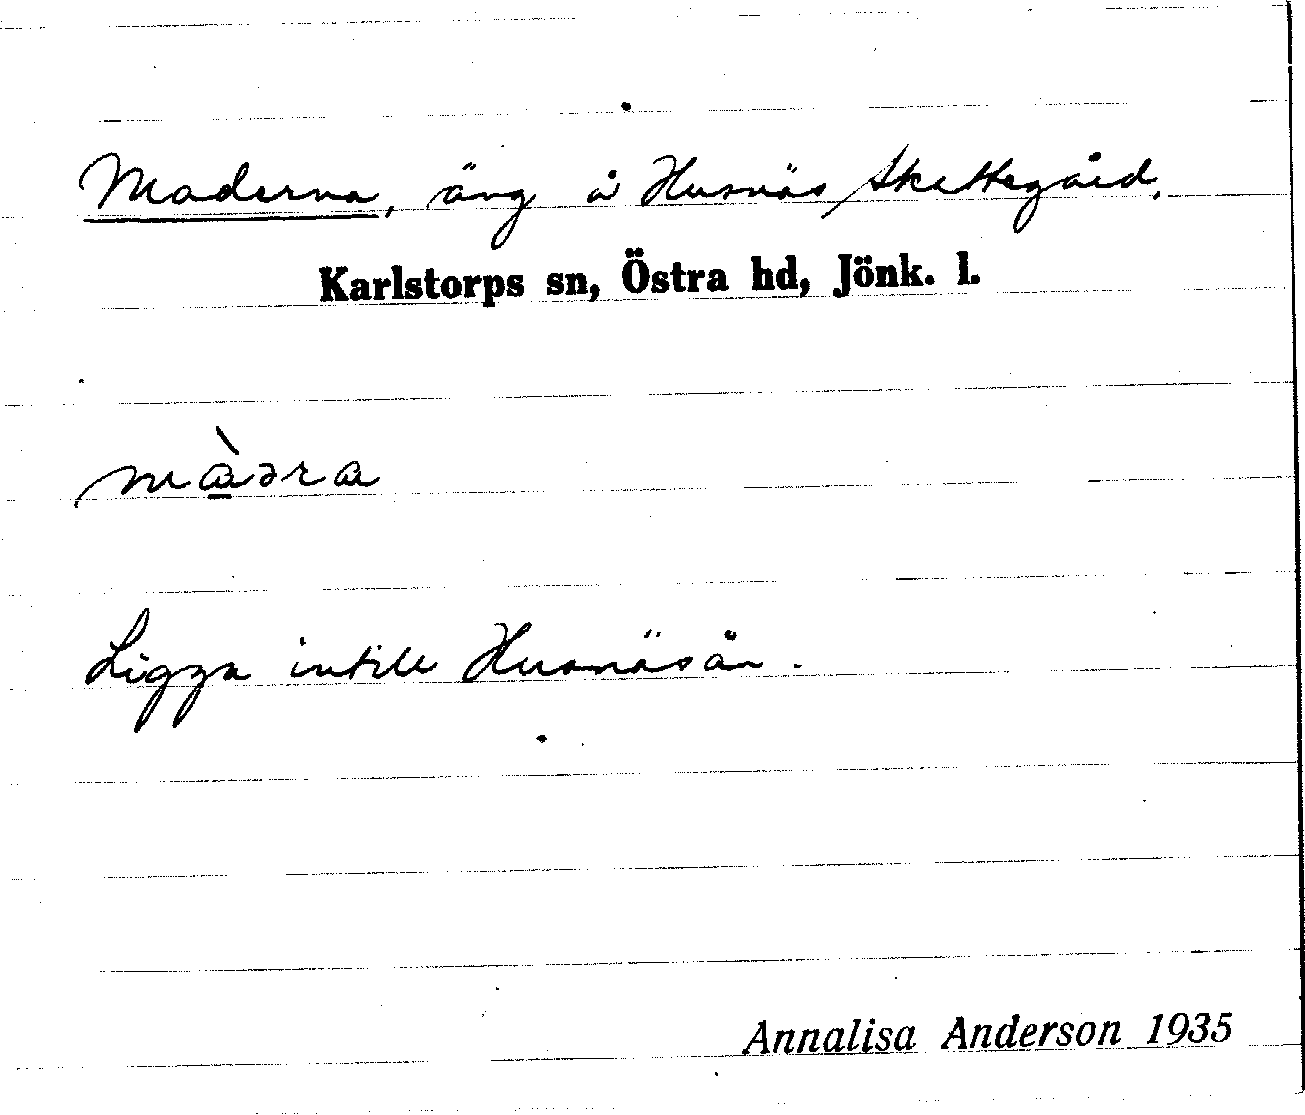 Maderna, äng å Husnäs Skattegård.
Karlstorps sn, Östra hd, Jönk. l.
mà̱əra
Ligga intill Husnäsån.
Annalisa Anderson 1935